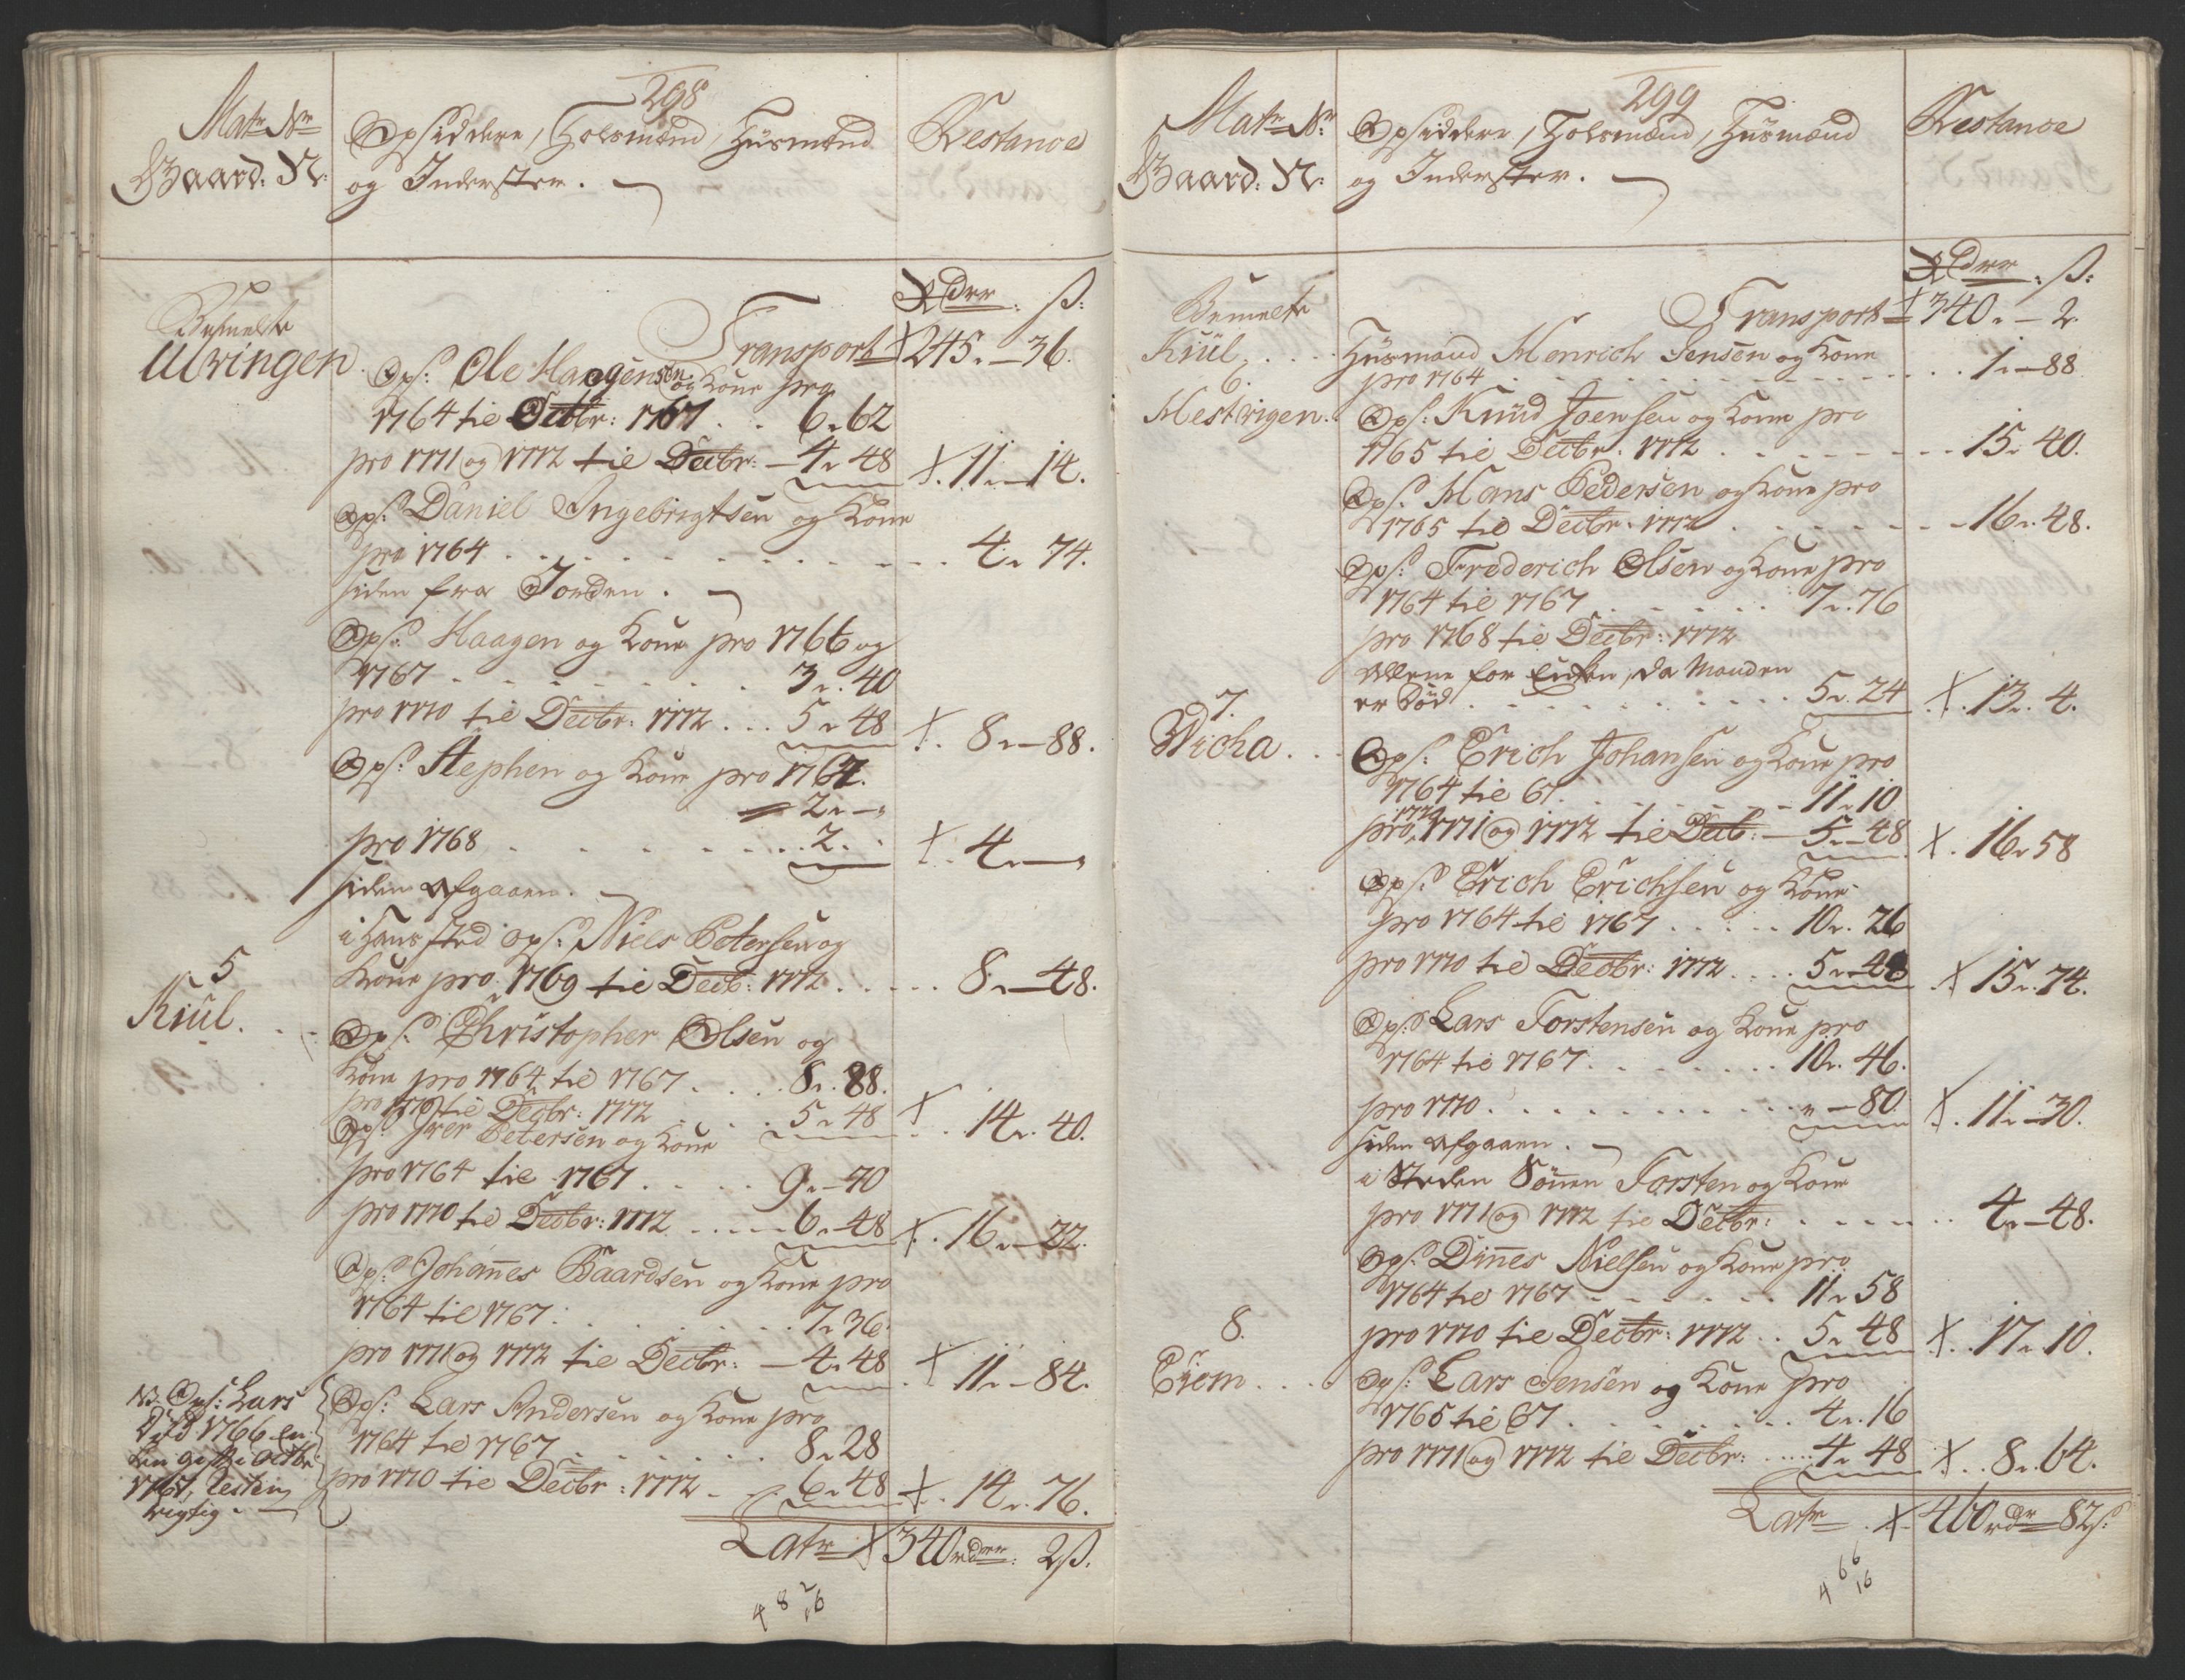 298
Matr: Nr:
Gaard: N:
Opsiddere, Holsmænd, Huusmænd
og Inderster.
Restance
Rdrr: ß:
Transport 245 „ — 36.
Bemelte
Ulvingen.
Ops: Ole Haagensen og Kone pro
1764 til Decbr: 1767 . . 6 „ 62
pro 1771 og 1772 til Decbr: — 4 „ 48 11 „ — 14.
Ops: Daniel Ingebrigtsen og Kone
pro 1764 . . . . 4 „ 74.
siden fra Jorden.
Ops: Haagen og Kone pro 1766 og
1767 . . . . 3 „ 40
pro 1770 til Decbr: 1772 . . . 5 „ 48 8 „ — 88.
Ops: Stephen og Kone pro 1767.
2 „ — „
pro 1768 . . . . 2. „ 4 „ — „
siden afgaaen.
i Hans sted ops: Niels Petersen og
Kone pro 1769 til Decb: 1772 . . . . 8 „ — 48.
5
Kiül . . .
Ops: Christopher Olsen og
Kone pro 1764 til 1767 . . . . 8 „ 88.
pro 1770 til Decbr: 1772 . . . 5 „ 48 14 „ 40.
Ops: Iver Petersen og Kone
pro 1764 til 1767 . . . . 9 „ — 70
pro 1770 til Decbr: 1772 . . . . 6 „ — 48 16 „ — 22.
Ops: Johannes Baardsen og Kone pro
1764 til 1767 . . . . 7 „ 36.
pro 1771 og 1772 til Decbr: — 4 „ 48 11 „ — 84.
NB. Ops: Lars
Død 1766
1767,
rigtig.
Ops: Lars Andersen og Kone pro
1764 til 1767 . . . . 8 „ 28
pro 1770 til Decbr: 1772 . . 6 „ 48 14 „ 76.
Latr 340 rdrr: 2 ß.
4 8 2/16
299
Matr: Nr:
Gaard: N:
Opsiddere, Holsmænd, Huusmænd
og Inderster.
Restance
Rdrr: ß:
Transport 340 „ — 2.
Bemelte
Kiül . . . .
Huusmand Henrich Jensen og Kone
pro 1764 . . . . 1 „ — 88.
6.
Mestrigen.
Ops: Knud Joensen og Kone pro
1765 til Decbr: 1772 . . . . 15 „ 40.
Ops: Hans Pedersen og Kone pro
1765 til Decbr: 1772 . . . . 16 „ 48.
Ops: Frederich Olsen og Kone pro
1764 til 1767 . . . . 7 „ 76
pro 1768 til Decbr: 1772
allene for Enken, da Manden
er død . . . . 5 „ 24 13 „ 4.
7.
Wicha . . .
Ops: Erich Johansen og Kone pro
1764 til 67. . . . 11 „ 10
1770
pro 1771 og 1772 til Decb: — 5 „ — 48 16 „ 58
Ops: Erich Erichsen og Kone
pro 1764 til 1767 . . . . 10 „ 26
pro 1770 til Decbr: 1772 . . . . 5 „ 48 15 „ 74.
Ops: Lars Torstensen og Kone pro
1764 til 1767 . . . . 10 „ 46.
pro 1770 . . . . „ — 80 11 „ — 30.
siden afgaaen.
i Steden Sønnen Torsten og Kone
pro 1771 og 1772 til Decbr: . . . . 4 „ — 48.
Ops: Dines Nielsen og Kone pro
1764 til 1767 . . . . 11 „ 58
pro 1770 til Decbr: 1772 . . 5 „ 48 17 „ 10.
8.
Eiom . . . .
Ops: Lars Jensen og Kone pro
1765 til 67 . . . . 4 „ 16
pro 1771 og 1772 til Decbr: . . . . 4 „ 48 8 „ 64.
Latr 460 rdr 82 ß:
4 6 6/16